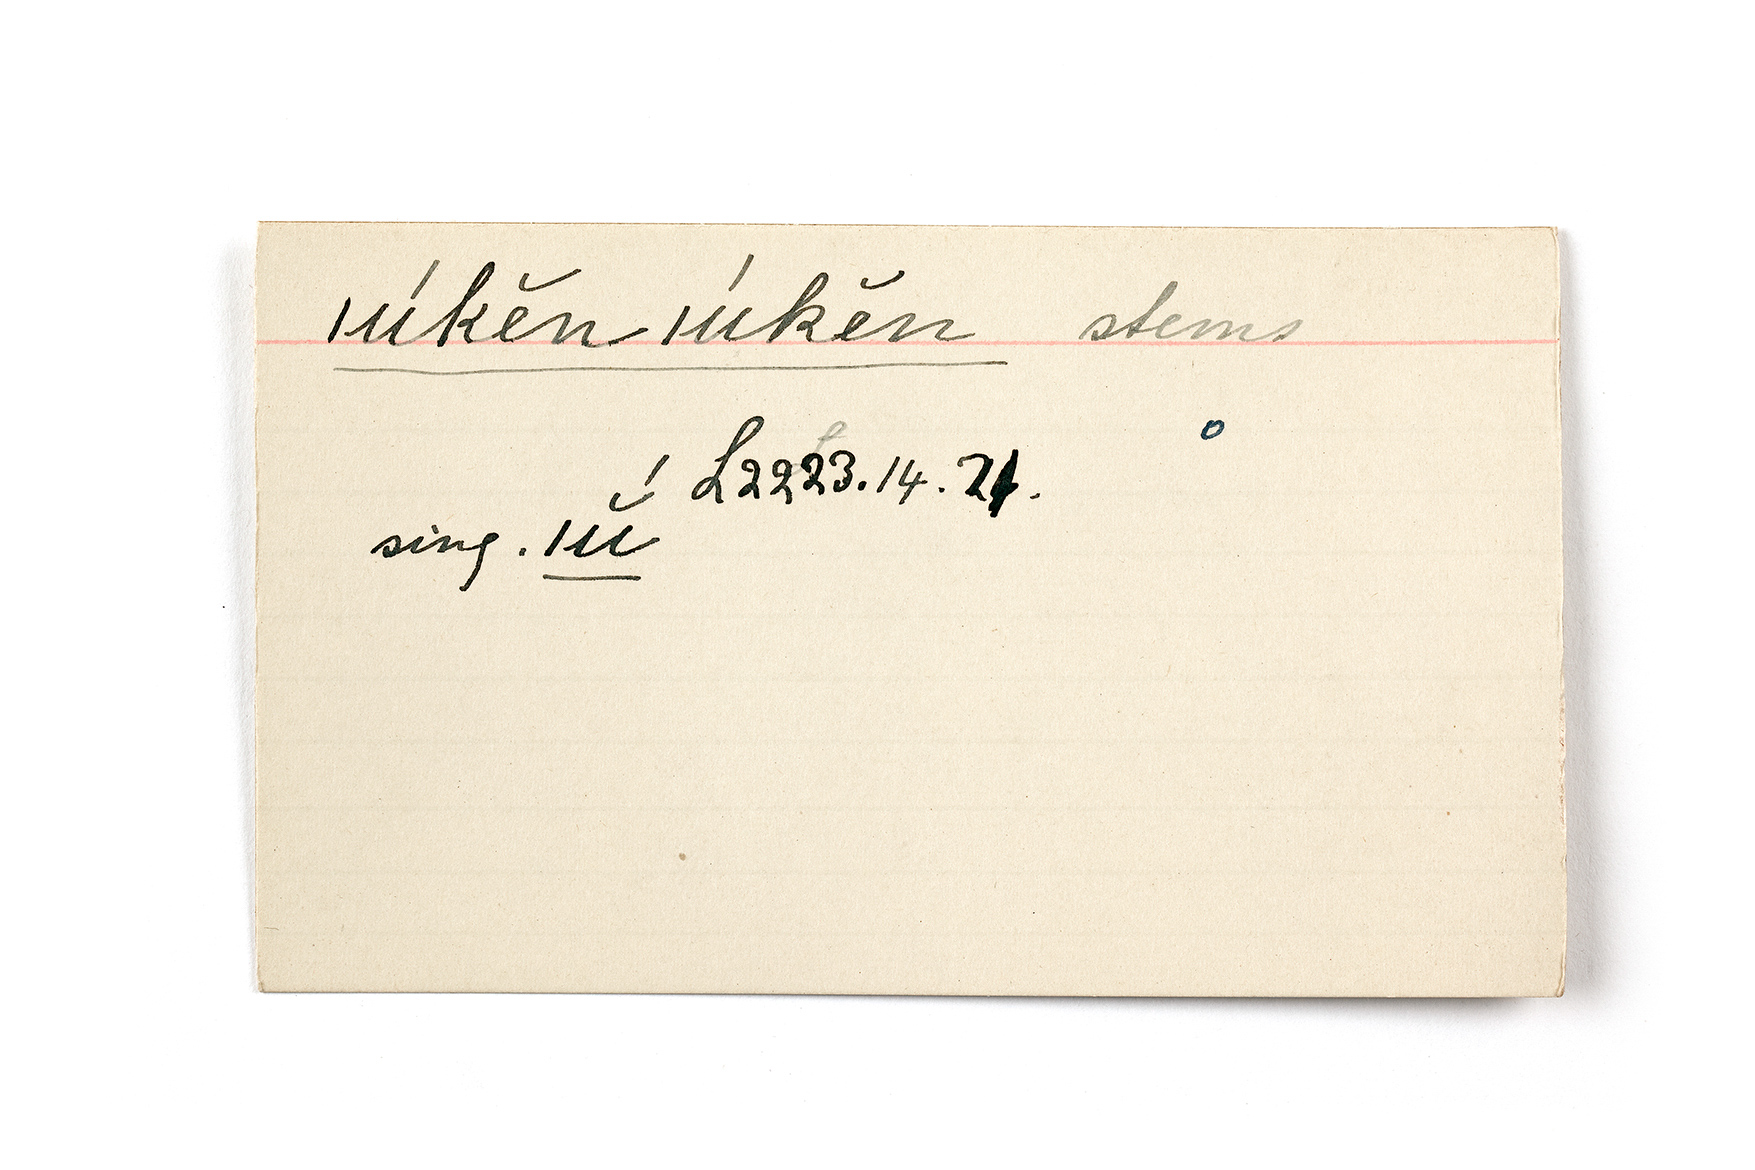 ǀúkĕn ǀúkĕn stems
L2223.14.21.
sing. ǀŭ́
o